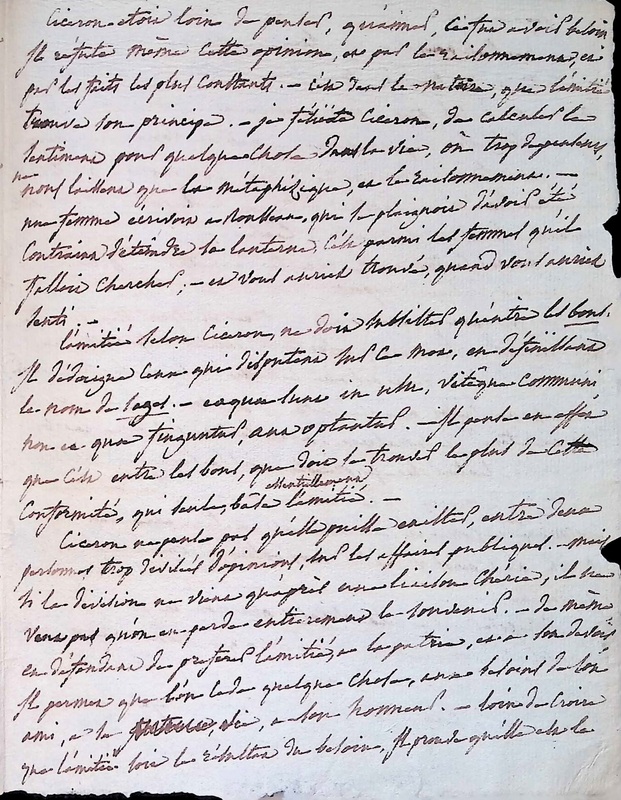 Ciceron etoit loin de penser, qu'aimer, c'etoit avoir besoin
Il réfute même cette opinion, et par le raisonnement, et
par les faits les plus constants. – C'est dans la nature, que l'amitié
trouve son principe. – je félicite Ciceron, de calculer le
sentiment pour quelque chose dans la vie, on trop de penseurs,
ne nous laissent que la métaphizique, et le raisonnement. –
une femme ecrivoit a Rousseau, qui se plaignoit d'avoir été
contraint d'éteindre sa lanterne C'est parmi les femmes qu'il
falloit chercher, – et vous auriez trouvé, quand vous auriez
senti –
L'amitié selon Ciceron, ne doit subsister qu'entre les bons.
Il dédaigne ceux qui disputent sur ce mot, en définissant
le nom de sages. – ea quae sunt in usu, vitâque communi
non ea quae finguntur, aut optantur. – Il pense en effet
que c'est entre les bons, que doit se trouver le plus de cette
essentiellement
conformité, qui seule, base l'amitié. –
Ciceron ne pense pas qu'elle puisse exister, entre deux
personnes trop divisées d'opinions, sur les affaires publiques. – mais
si la division ne vient qu'après une liaison chérie, il ne
veut pas qu'on en perde entierement le souvenir. – de même
en défendant de preferer l'amitié, a la patrie, et a son devoir
Il permet que l'on cede quelque chose, aux besoins de son
ami, a sa vie, a son honneur. – loin de croire
que l'amitié soit le résultat du besoin, Il prouve qu'elle est le